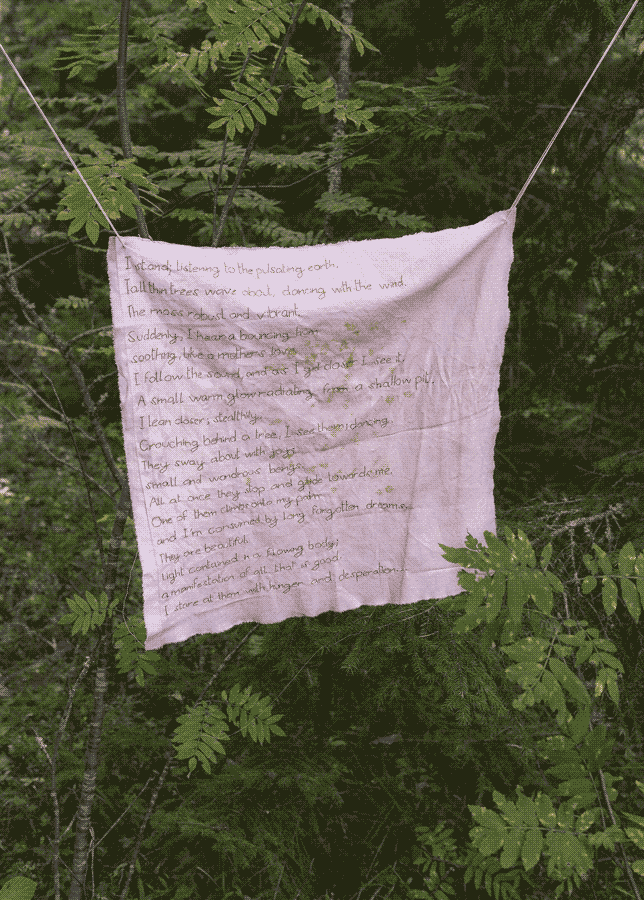 I stand, listening to the pulsating earth.
Tall thin trees wave about, dancing with the wind.
The moss robust and vibrant.
Suddenly, I hear a bouncing hum
soothing, like a mothers love.
I follow the sound, and as I get closer I see it;
A small warm glow radiating from a shallow pit.
I lean closer; stealthily.
Crouching behind a tree, I see them; dancing.
They sway about with joy;
small and wondrous beings.
All at once they stop and glide towards me.
One of them climbs onto my palm
and I'm consumed by long forgotten dreams.
They are beautiful.
Light contained in a flowing body;
a manifestation of all that is good.
I stare at them with hunger and desperation...